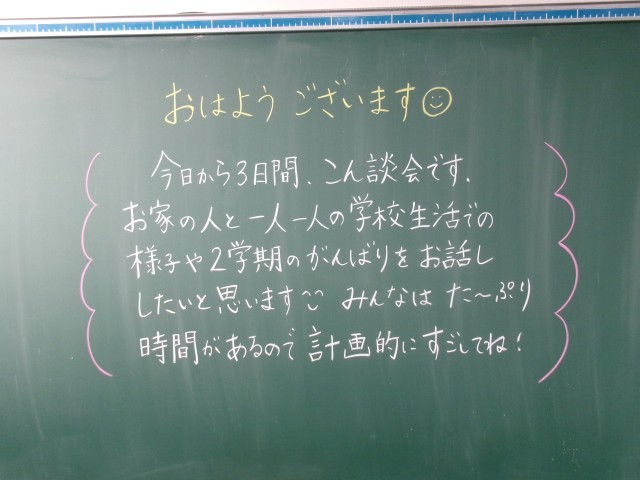 おはよう ございます☺
今日から3日間、こん談会です。
お家の人と一人一人の学校生活での
様子や2学期のがんばりをお話し
したいと思います みんなは た〜ぷり
時間があるので計画的にすごしてね！